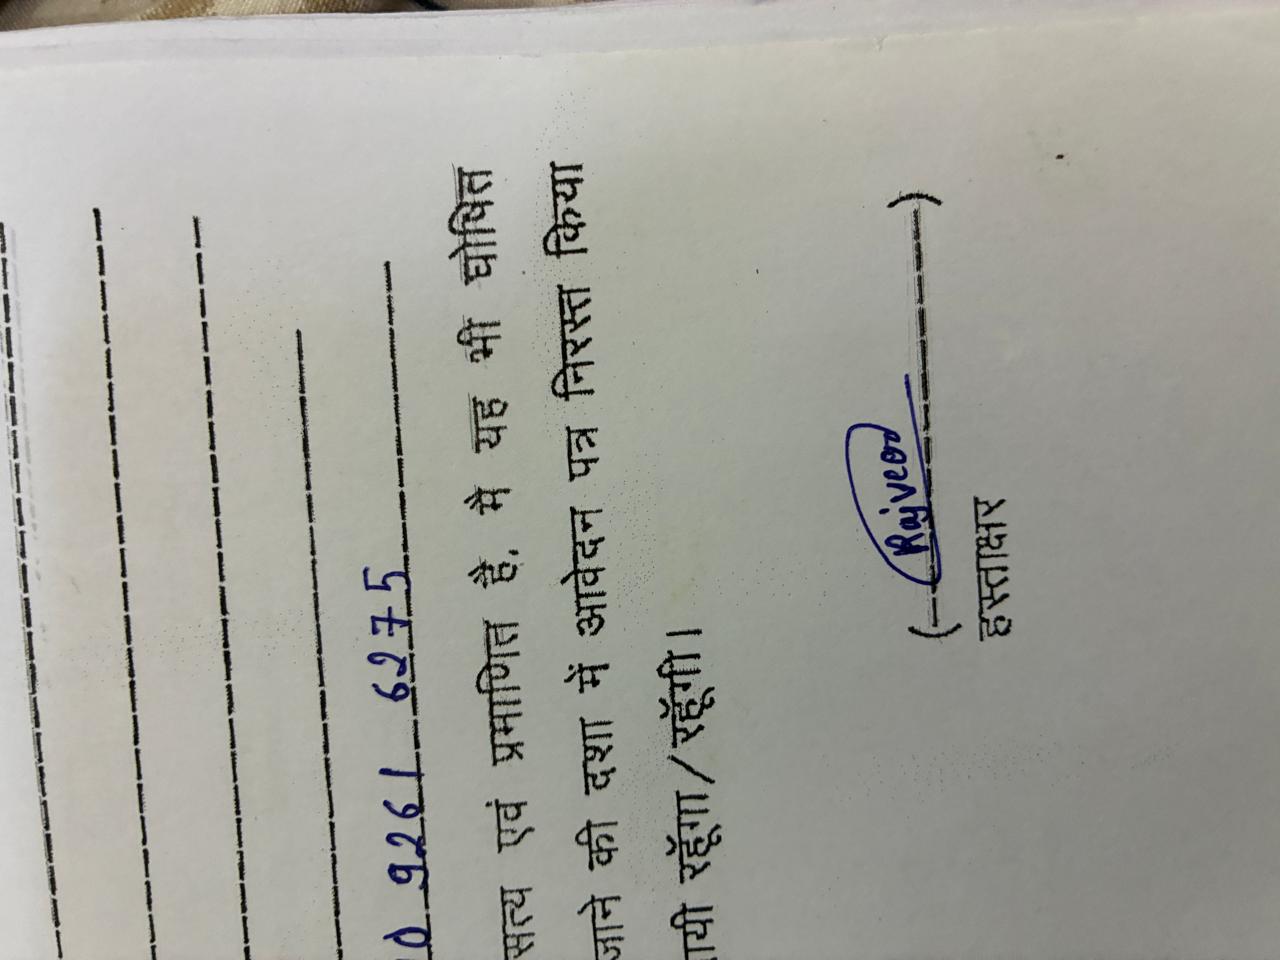 0 9261 6275
सत्य एवं प्रमाणित है, मै यह भी घोषित
जाने की दशा में आवेदन पत्र निरस्त किया
ायी रहूँगा/रहूँगी।
(Rajveer)
हस्ताक्षर